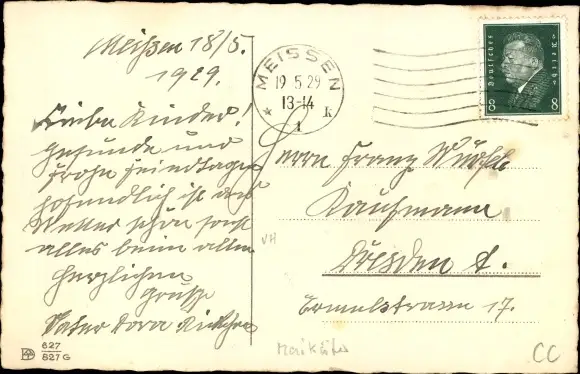 Meißen 18/5.
1929.
Liebe Kinder!
gesunde und
frohe Feiertage
hoffendlich ist das
Wetter schön sonst
alles beim alten
Herzlichen
Gruß
Vater Dora
627
827 G
MEISSEN
19.5.29
13-14
* 1 k
Deutsches Reich
8 8
Herrn Franz
Kaufmann
Dresden A.
17.
VH
CC